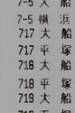 7-5 大船
7-5 横浜
717 大船
717 平塚
718 大船
718 平塚
719 大船